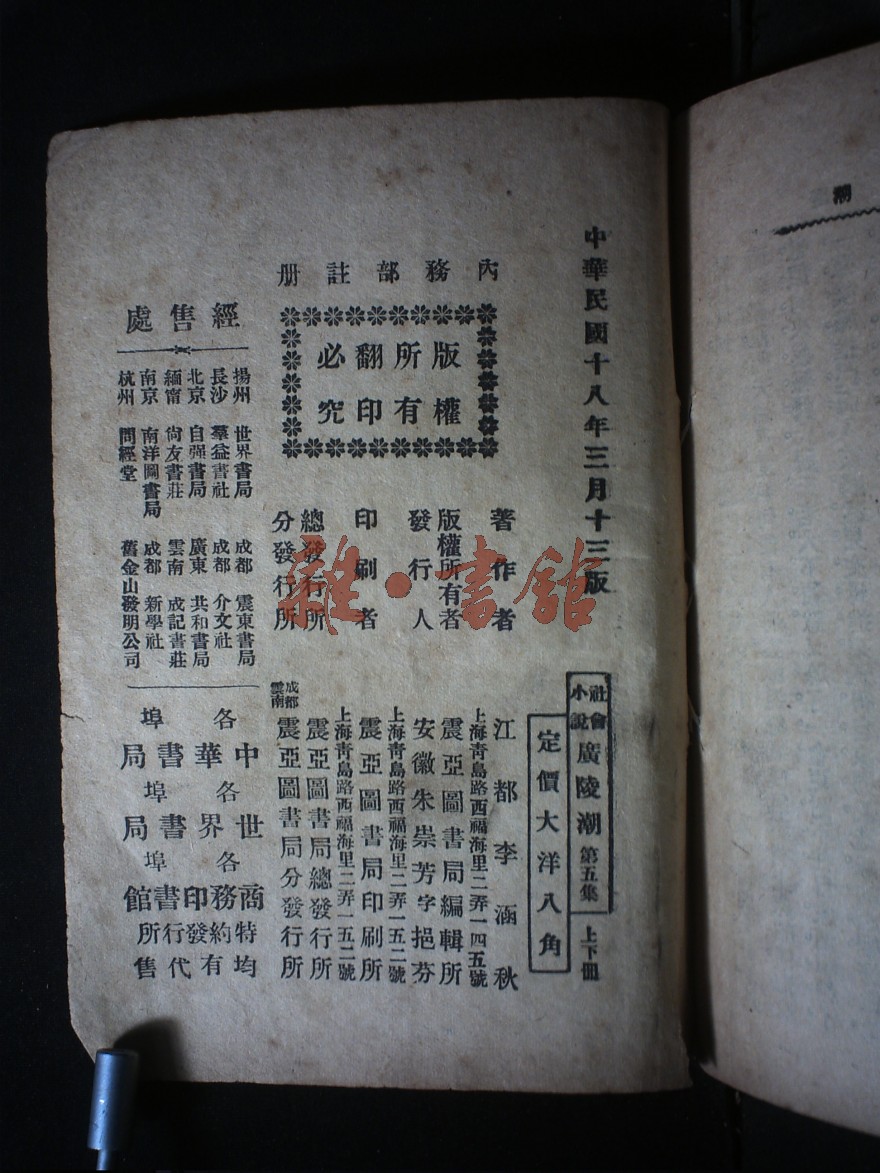 中華民國十八年三月十三版
社會小說 廣陵潮 第五集 上下冊
定價大洋八角
內務部註册
版權所有
翻印必究
著作者 江都李涵秋
版權所有者 上海靑島路西福海里二弄一四五號 震亞圖書局編輯所
發行人 安徽朱崇芳字挹芬
印刷者 上海靑島路西福海里二弄一五二號 震亞圖書局印刷所
總發行所 上海靑島路西福海里二弄一五二號 震亞圖書局總發行所
分發行所 成都 雲南 震亞圖書局分發行所
經售處
揚州 世界書局 成都 震東書局
長沙 羣益書社 成都 介文社
北京 自强書局 廣東 共和書局
緬甯 尙友書莊 雲南 成記書莊
南京 南洋圖書局 成都 新學社
杭州 問經堂 舊金山發明公司
各埠中華書局
各埠世界書局
各埠商務印書館
特約發行所
均有代售
潮
雜·書館